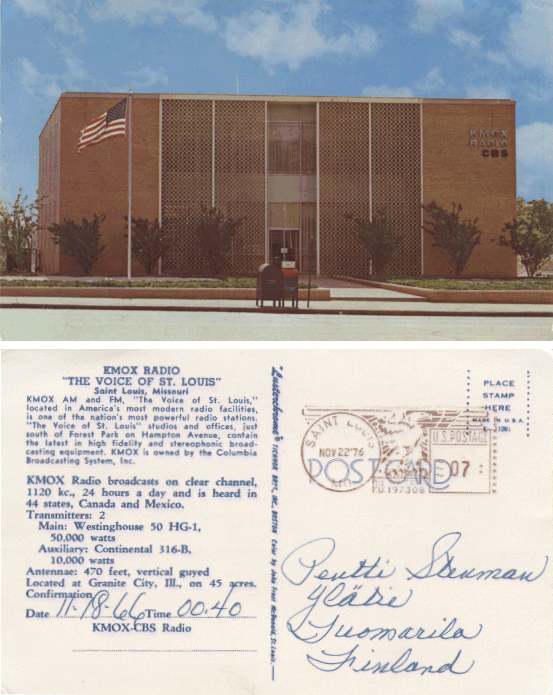 KMOX
RADIO
CBS
KMOX RADIO
"THE VOICE OF ST. LOUIS"
Saint Louis, Missouri
KMOX AM and FM, "The Voice of St. Louis,"
located in America's most modern radio facilities,
is one of the nation's most powerful radio stations.
"The Voice of St. Louis" studios and offices, just
south of Forest Park on Hampton Avenue, contain
the latest in high fidelity and stereophonic broad-
casting equipment. KMOX is owned by the Columbia
Broadcasting System, Inc.
KMOX Radio broadcasts on clear channel,
1120 kc., 24 hours a day and is heard in
44 states, Canada and Mexico.
Transmitters: 2
Main: Westinghouse 50 HG-1,
50,000 watts
Auxiliary: Continental 316-B,
10,000 watts
Antennae: 470 feet, vertical guyed
Located at Granite City, Ill., on 45 acres.
Confirmation
Date 11-18-66 Time 00:40
KMOX-CBS Radio
"Lusterchrome" TICHNOR BROS., INC., BOSTON Color by John Frost McDonald, St. Louis.
PLACE
STAMP
HERE
MADE IN U.S.A.
SAINT LOUIS
NOV 22 '76
MO.
U.S. POSTAGE
07
POST CARD
P.B. 197308
Pentti Stenman
Ylätie
Tuomarila
Finland